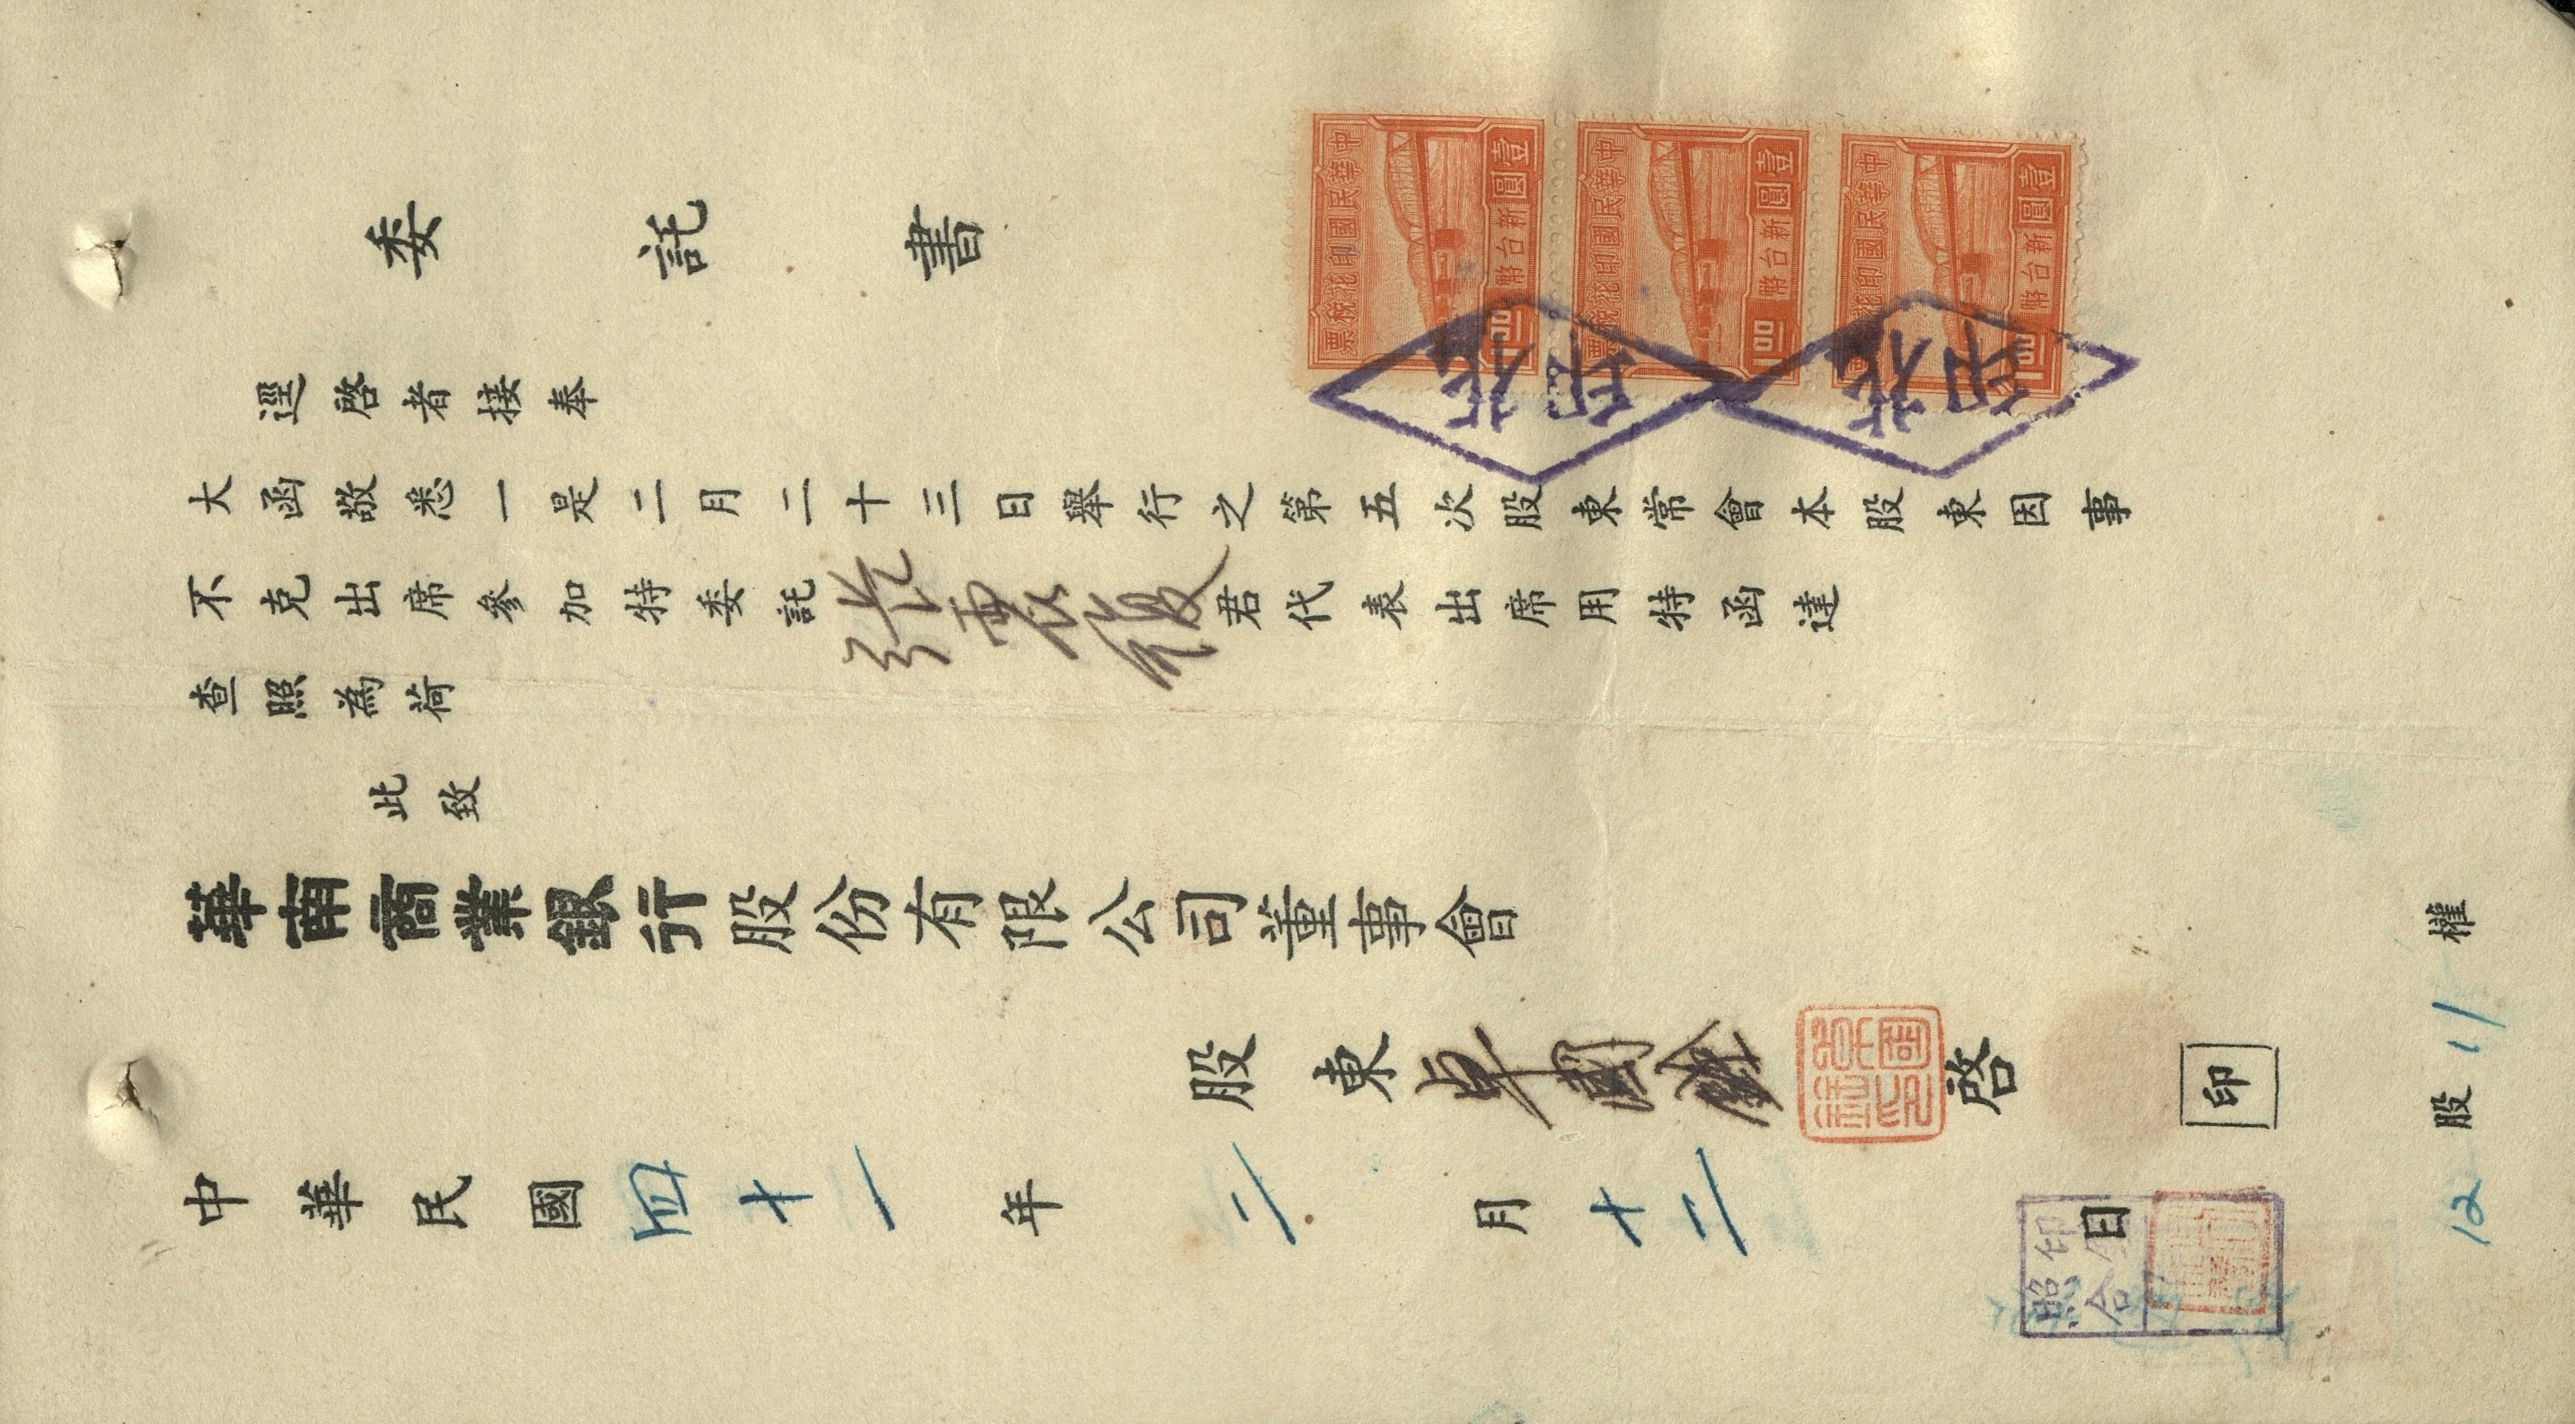 委託書
逕啓者接奉
大函敬悉一是二月二十三日舉行之第五次股東常會本股東因事
不克出席參加特委託張震復君代表出席用特函達
查照為荷
此致
華南商業銀行股份有限公司董事會
股東 啓
印
中華民國四十一年二月十二日
12股11權
中華民國印花稅票
壹圓
新台幣
1.00
中華民國印花稅票
壹圓
新台幣
1.00
中華民國印花稅票
壹圓
新台幣
1.00
印花
印花
印合照